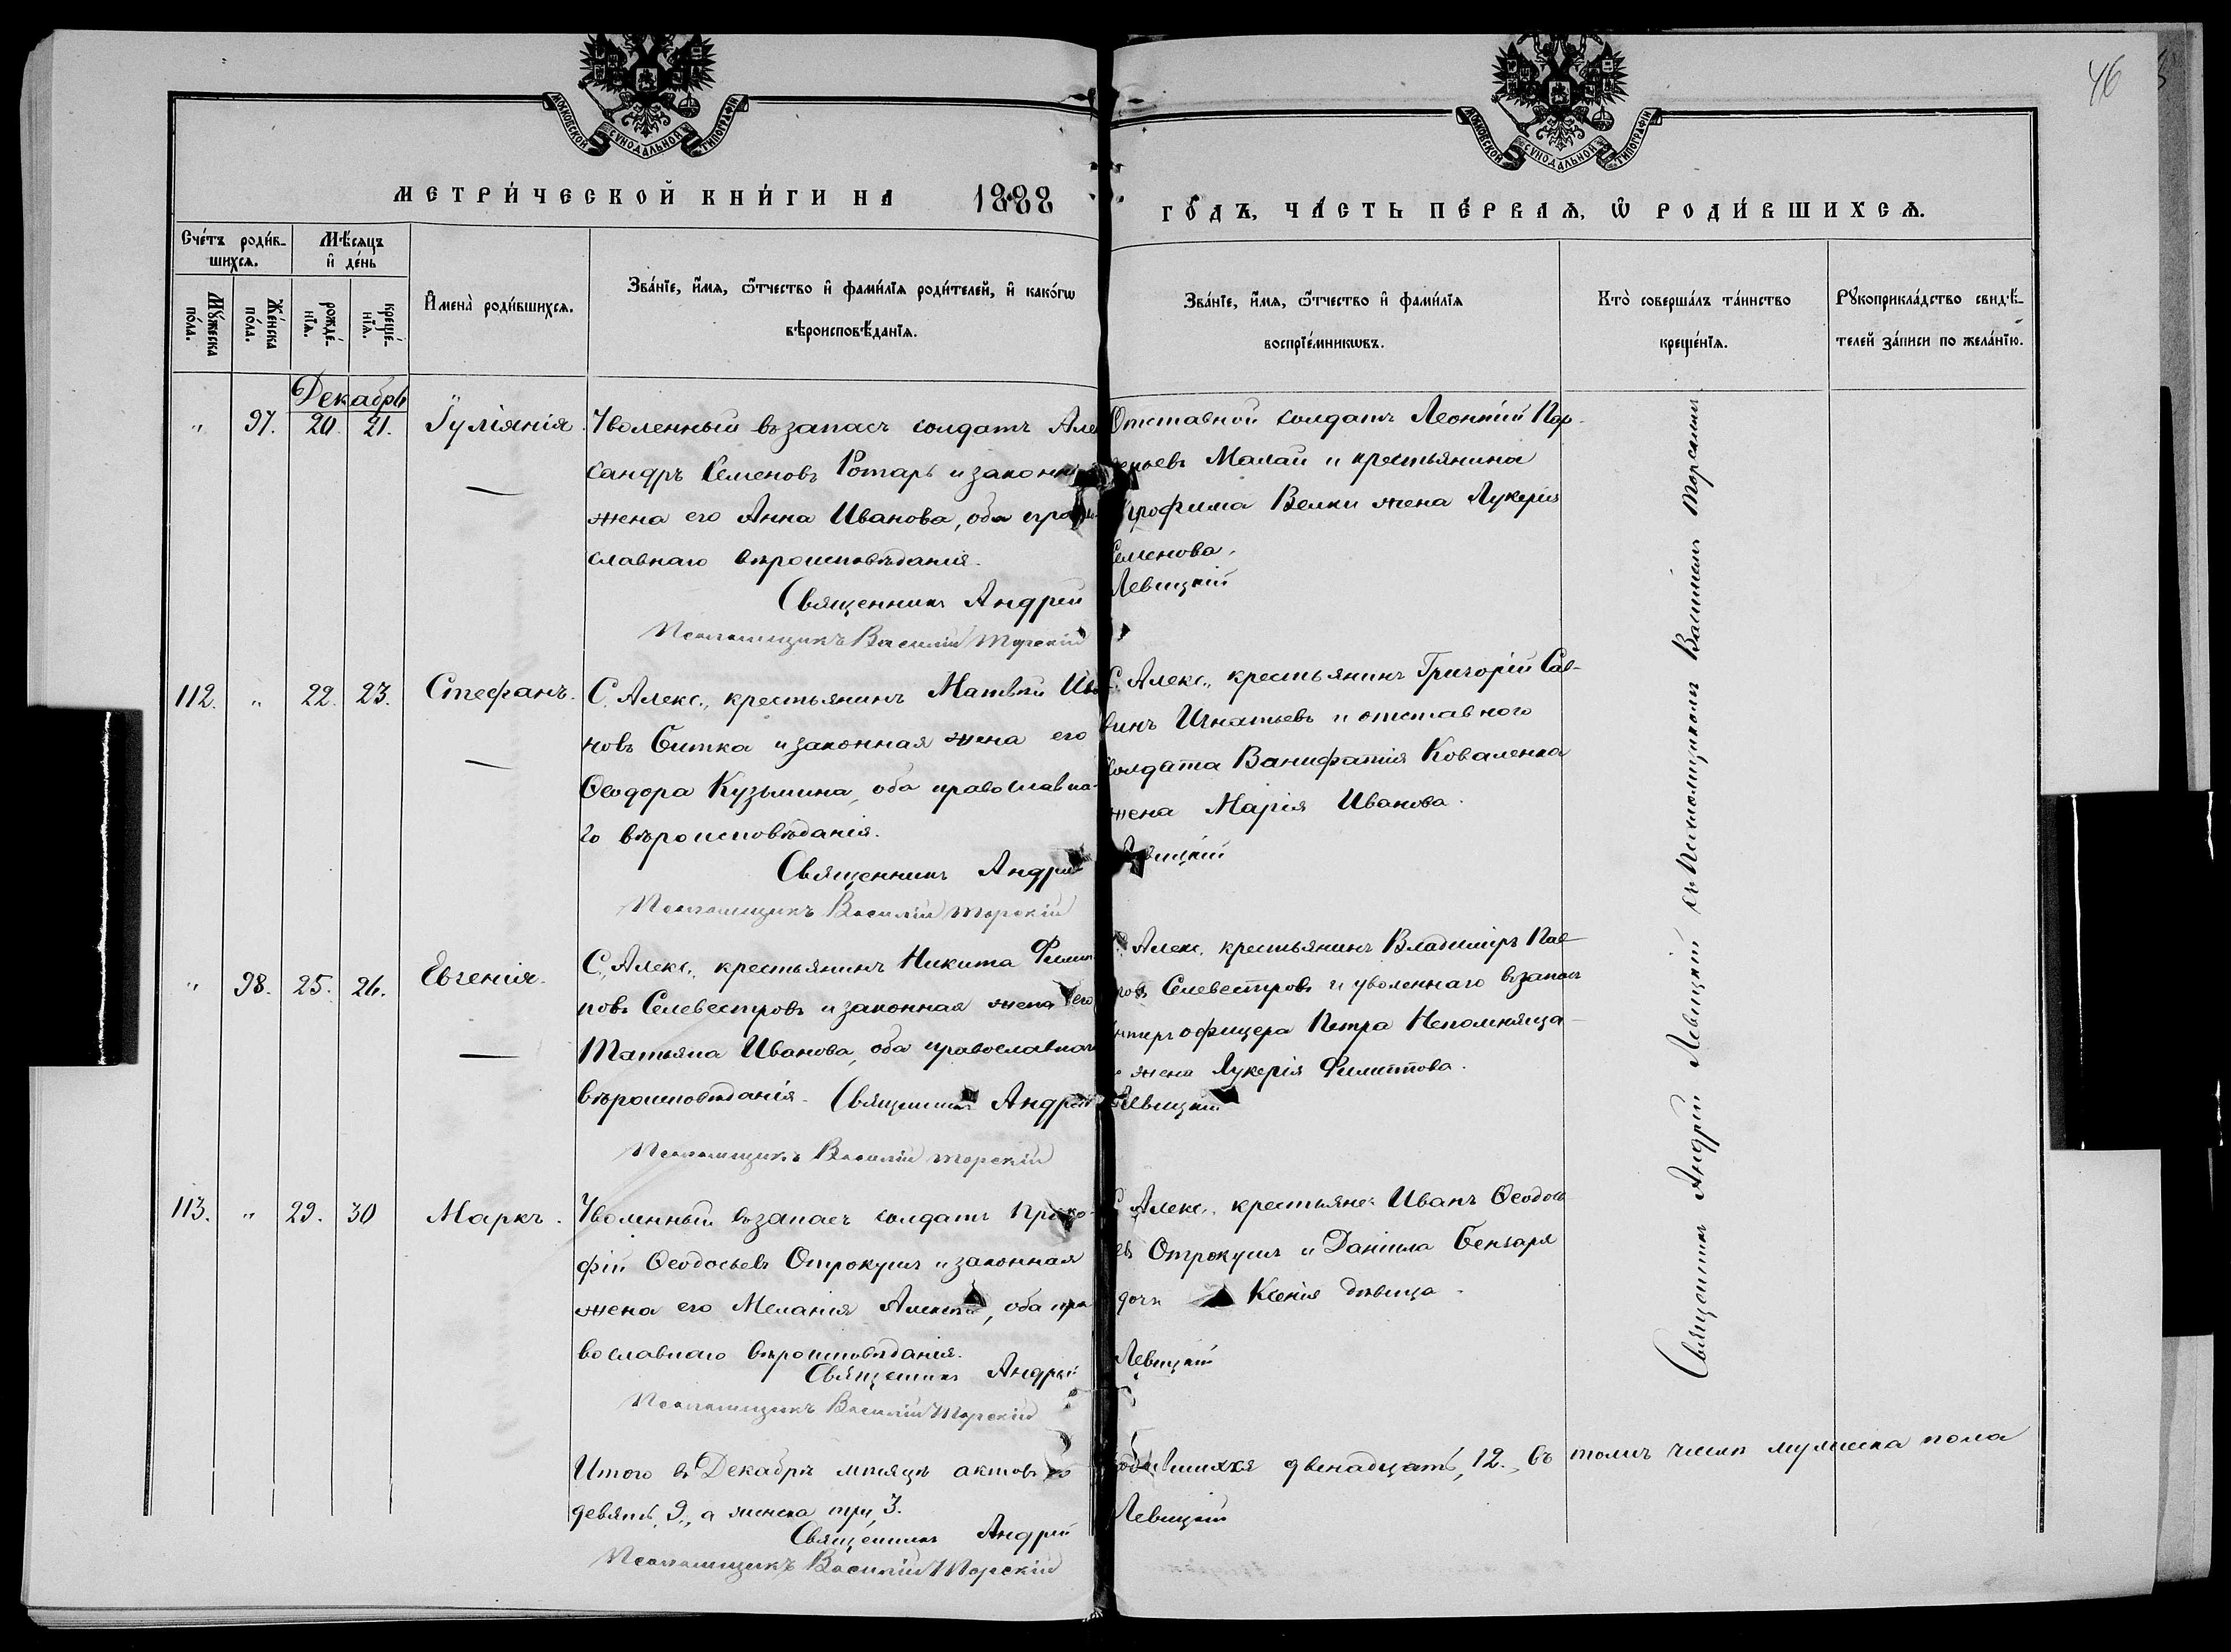 46
МОСКОВСКОЙ СѴНОДАЛЬНОЙ ТИПОГРАФІИ
МОСКОВСКОЙ СѴНОДАЛЬНОЙ ТИПОГРАФІИ
МЕТРИ́ЧЕСКОЙ КНИ́ГИ НА 1888
ГО́ДЪ, ЧА́СТЬ ПЕ́РВАѦ, Ѽ РОДИ́ВШИХСѦ.
Сче́тъ роди́в-
шихсѧ.
Мѣ́сяцъ
и҆ де́нь
Мꙋ́жеска
по́ла.
Же́нска
по́ла.
рожде́-
нїѧ.
креще́-
нїѧ.
И҆мена̀ роди́вшихсѧ.
Зва́нїе, и҆́мѧ, ѻ҆́тчество и҆ фами́лїѧ роди́телей, и҆ како́гѡ
вѣроисповѣ́данїѧ.
Зва́нїе, и҆́мѧ, ѻ҆́тчество и҆ фами́лїѧ
воспрїе́мникѡвъ.
Кто̀ соверша́лъ та́инство
креще́нїѧ.
Рꙋкоприкла́дство свидѣ́-
телей за́писи по жела́нїю.
Декабрь
" 97. 20. 21. Іуліянія. Уволенный въ запасъ солдатъ Але
сандръ Семеновъ Ротарь и законн
жена его Анна Иванова, оба право-
славнаго вѣроисповѣданія.
Священникъ Андрей
Псаломщикъ Василій Торскій
Отставной солдатъ Леонтій Пор-
Малай и крестьянина
Трофима Велки жена Лукерія
Семенова.
Левицкій
112. " 22. 23. Стефанъ. С. Алекс., крестьянинъ Матвѣй Ива
новъ Ситка и законная жена его
Ѳеодора Кузьмина, оба православна-
го вѣроисповѣданія.
Священникъ Андрей
Псаломщикъ Василій Торскій
С. Алекс., крестьянинъ Григорій Сав-
винъ Игнатьевъ и отставного
солдата Ванифатія Коваленка
жена Марія Иванова.
Левицкій
" 98. 25. 26. Евгенія. С. Алекс., крестьянинъ Никита Филип
повъ Селевестровъ и законная жена его
Татьяна Иванова, оба православнаго
вѣроисповѣданія. Священникъ Андрей
Псаломщикъ Василій Торскій
С. Алекс. крестьянинъ Владиміръ Пав
ровъ Селевестровъ и уволеннаго въ запасъ
унтеръ офицера Петра Непомняща-
го жена Лукерія Филиппова.
Левицкій
113. " 29. 30 Маркъ. Уволенный въ запасъ солдатъ Проко-
фій Ѳеодосьевъ Отрокушъ и законная
жена его Меланія, оба пра
вославнаго вѣроисповѣданія.
Священникъ Андрей
Псаломщикъ Василій Торскій
С. Алекс., крестьяне: Иванъ Ѳеодось
евъ Отрокушъ и Даніила Бенгаря
дочь Ксенія дѣвица.
Левицкій
Священникъ Андрей Левицкій съ Псаломщикомъ Василіемъ Торскимъ
Итого въ Декабрѣ мѣсяцѣ актовъ о родившихся двенадцать, 12., въ томъ числѣ мужеска пола
девять, 9., а женска три, 3.
Священникъ Андрей Левицкій
Псаломщикъ Василій Торскій